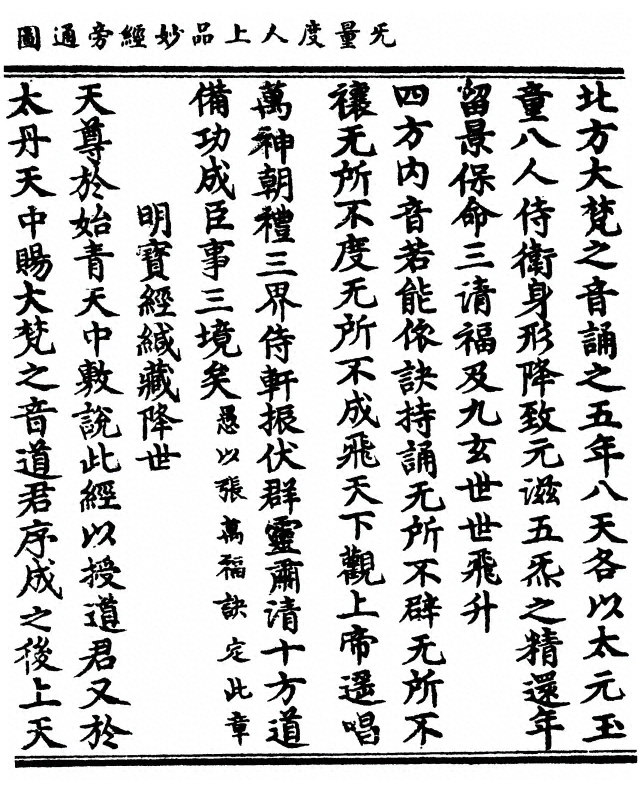 无量度人上品妙經旁通圖
北方大梵之音誦之五年八天各以太元玉
童八人侍衛身形降致元滋五炁之精還年
留景保命三清福及九玄世世飛升
四方内音若能依訣持誦无所不辟无所不
禳无所不度无所不成飛天下觀上帝遥唱
萬神朝禮三界侍軒振伏群靈肅清十方道
備功成臣事三境矣愚以張萬福訣定此章
明寶經緘藏降世
天尊於始青天中敷說此經以授道君又於
太丹天中賜大梵之音道君序成之後上天